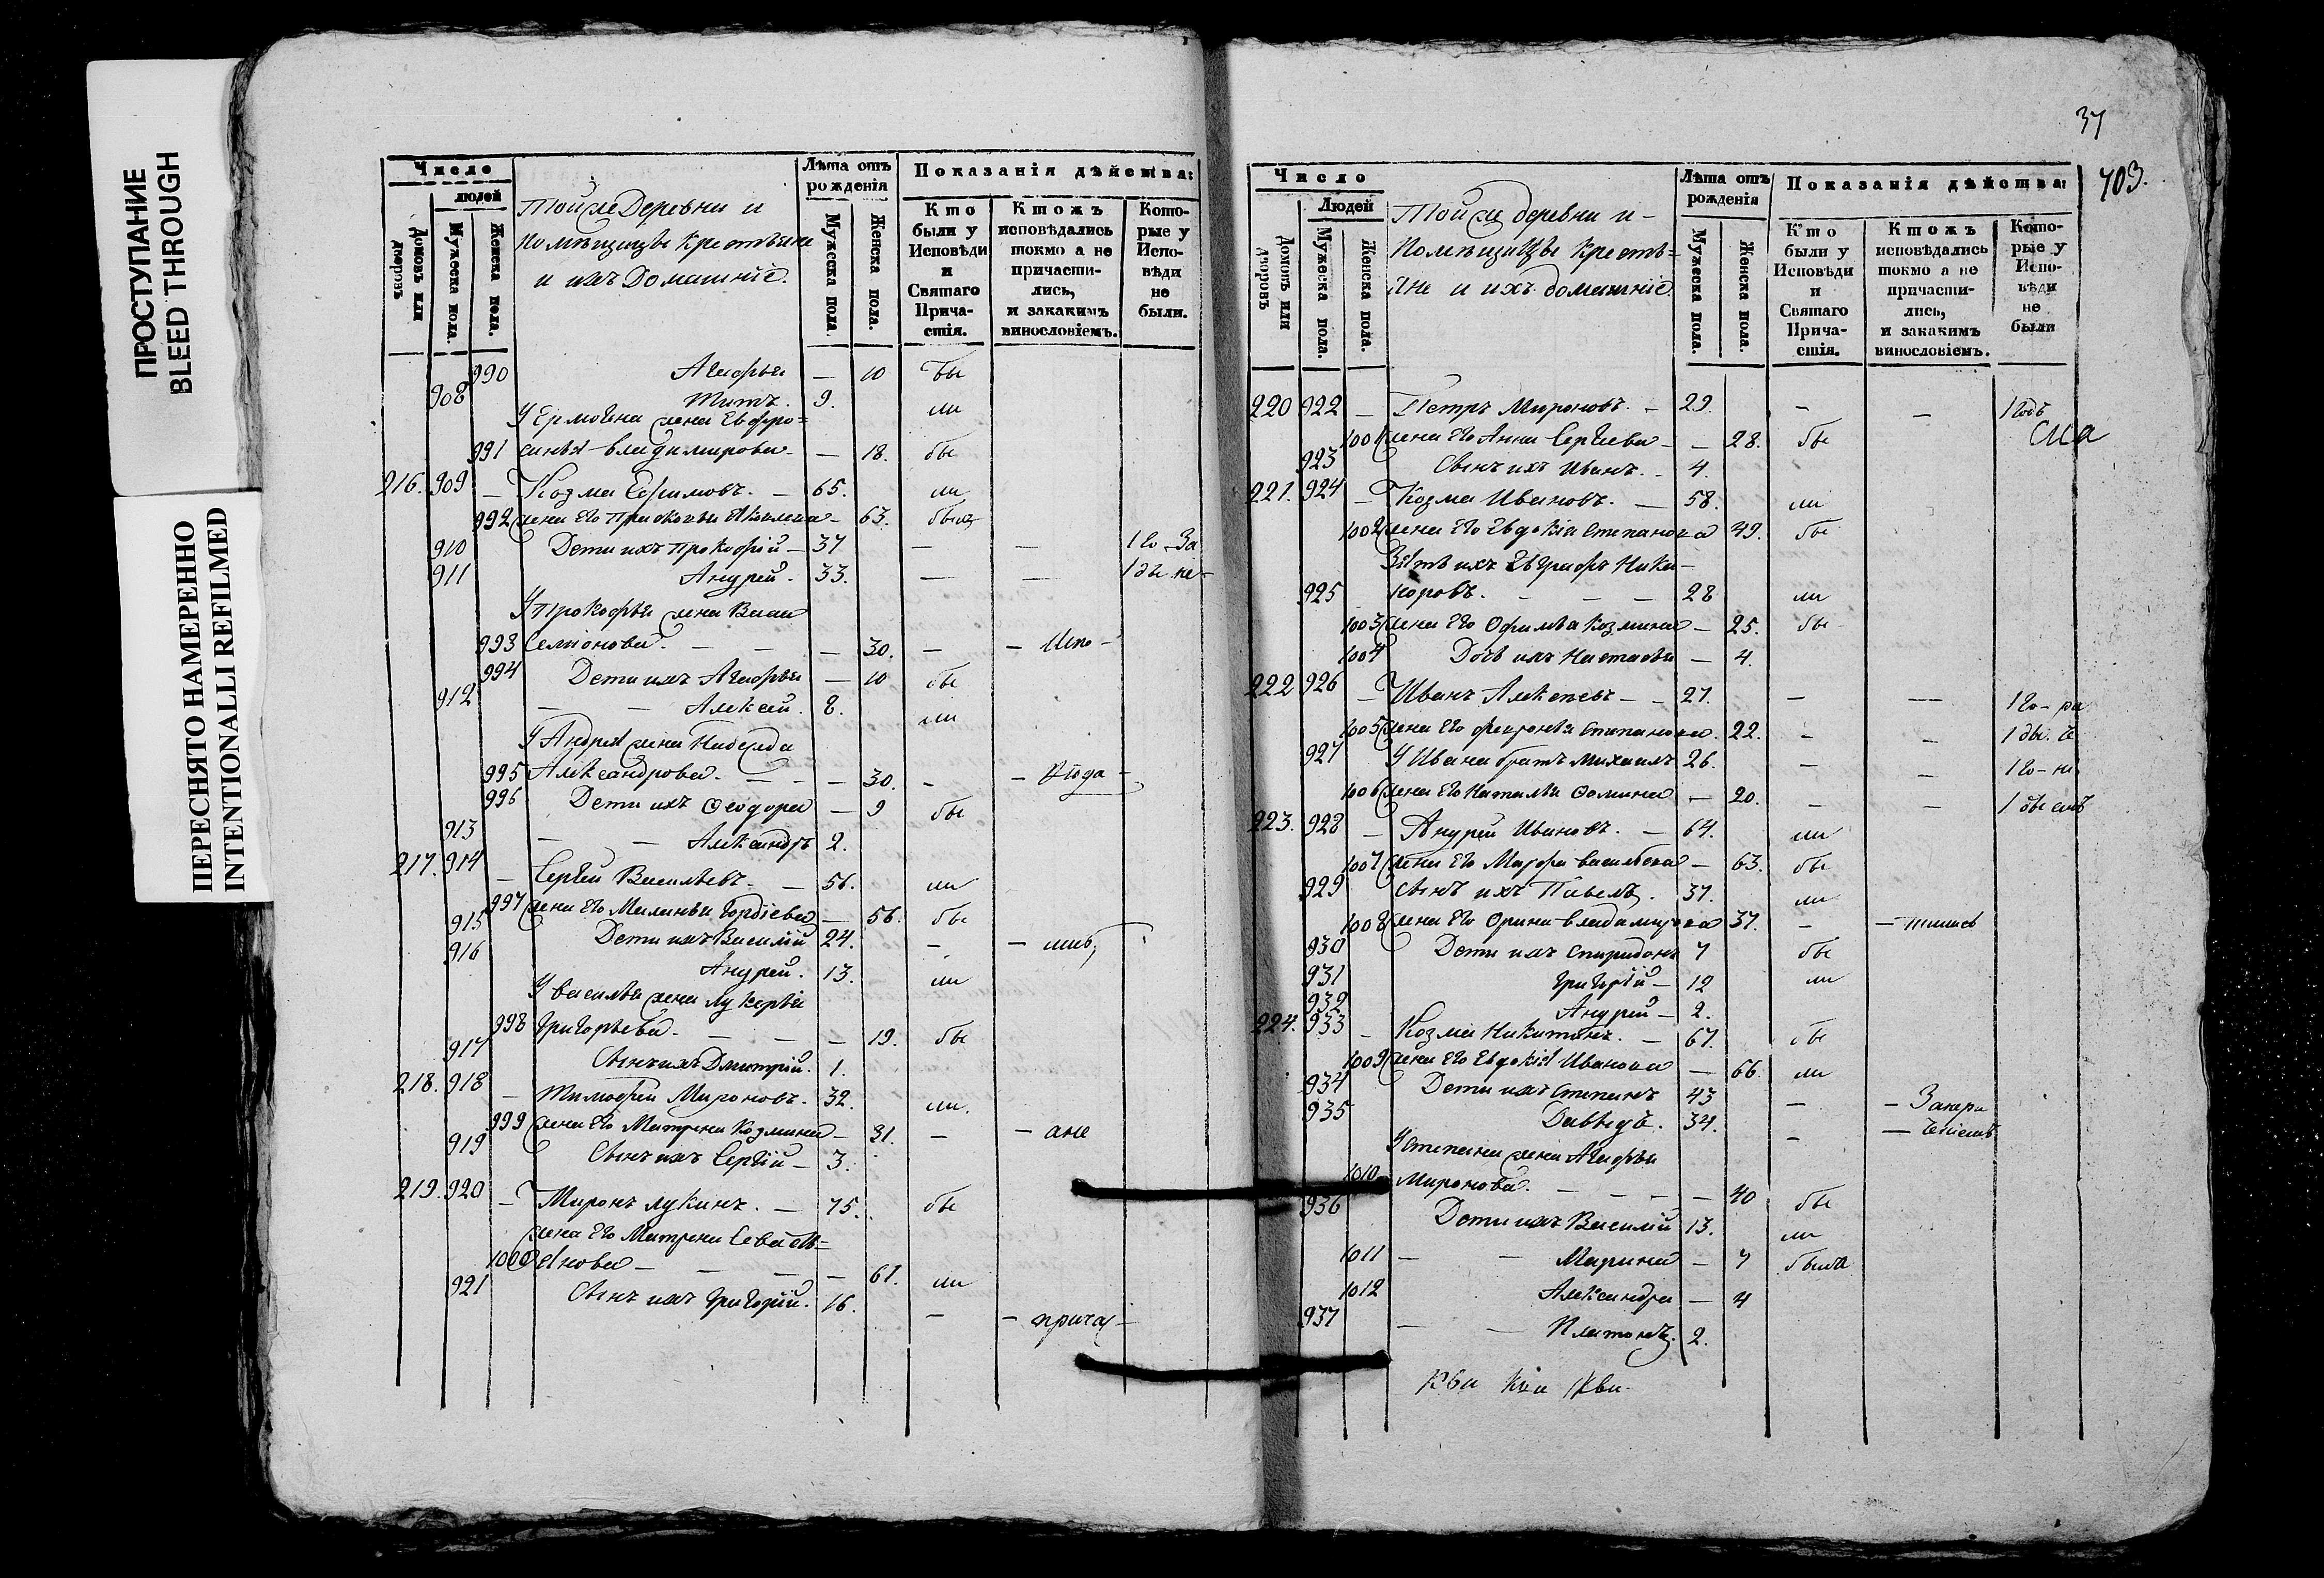 ПРОСТУПАНИЕ
BLEED THROUGH
ПЕРЕСНЯТО НАМЕРЕННО
INTENTIONALLI REFILMED
Число
людей
Домовъ или дворовъ
Мужеска пола.
Женска пола.
Той же Деревни и
помѣщицы крестьяне
и ихъ Домашніе.
Лѣта отъ рожденія
Мужеска пола.
Женска пола.
Показанія дѣйства:
Кто были у Исповѣди и Святаго Причастія.
Ктожъ исповѣдались токмо а не причастились, и закакимъ винословіемъ.
Которые у Исповѣди не были.
990 Агафья — 10 бы
908 Титъ. 9. ли
У Ермолая жена Евфро=
991 синья Владимирова — 18. бы
216. 909 — Козма Ефимовъ. — 65. ли
992 жена его Прасковья Яковлева — 63. были
910 Дети ихъ Прокофій — 37 — — 1 го За
911 Андрей. 33. — — 1 ды не-
У Прокофья жена Васса
993 Семіонова. — — — 30. — — Испо-
994 Дети ихъ Агафья — 10 бы
912 — — Алексей. 8. ли
У Андрея жена Надежда
995 Александрова. — — — 30. — — Когда —
996 Дети ихъ Ѳеодора — 9 бы
913 — — Александръ 2.
217. 914 — Сергей Васильевъ. — 56. ли
997 жена его Маланья Гордіева — 56. бы
915 Дети ихъ Василій 24. — —
916 Андрей. 13. ли
У Василья жена Лукерья
998 Григорьева. — — — 19. бы
917 Сынъ ихъ Дмитрій. 1.
218. 918 — Тимофей Мироновъ. 32. ли.
999 жена его Матрена Козмина — 31. — — ане
919 Сынъ ихъ Сергій — 3.
219. 920 — Миронъ Лукинъ. — 75. бы
жена его Матрена Севасть=
1000 янова — — — — 61. ли
921 Сынъ ихъ Григорій. 16. — — причас-
37
703.
Число
Людей
Домовъ или дворовъ
Мужеска пола.
Женска пола.
Той же деревни и-
помѣщицы крестья=
не и ихъ домашніе.
Лѣта отъ рожденія
Мужеска пола.
Женска пола.
Показанія дѣйства:
Кто были у Исповѣди и Святаго Причастія.
Ктожъ исповѣдались токмо а не причастились, и закакимъ винословіемъ.
Которые у Исповѣди не были
220 922 — Петръ Мироновъ. — 29. — — 1 годъ
1001 жена его Анна Сергеева — — 28. бы
923 Сынъ ихъ Иванъ. — 4.
221. 924 — Козма Ивановъ. — 58. ли
1002 жена его Евдокія Степанова 49. бы
Зять ихъ Евграфъ Ника-
925 норовъ. — — — 28 ли
1003 жена его Офимья Козмина — 25. бы
1004 Дочь ихъ Настасья — 4.
222 926 — Иванъ Алексеевъ — — 27. — — 1 го-
1005 жена его Февронья Степанова. 22. — — 1 ды.
927 У Ивана братъ Михаилъ 26. — — 1 го-
1006 жена его Наталья Фомина — 20. — — 1
223. 928 — Андрей Ивановъ. — 64. ли
1007 жена его Марфа Васильева — 63. бы
929 Сынъ ихъ Павелъ. 37. ли
1008 жена его Орина Владимирова 37. — — тились
930 Дети ихъ Спиридонъ 7 бы
931 Григорій — 12 ли
932 Андрей — 2.
224. 933 — Козма Никитинъ. — 67. бы
1009 жена его Евдокія Иванова — 66. ли
934 Дети ихъ Степанъ 43 — — Занера
935 Давыдъ. 34. — — ченіемъ
У Степана жена Агафья
1010 Миронова. — — — — 40 бы
936 Дети ихъ Василій 13. ли
1011 — — Марина — 7 была
1012 Александра — 4
937 — — Платонъ. 2.